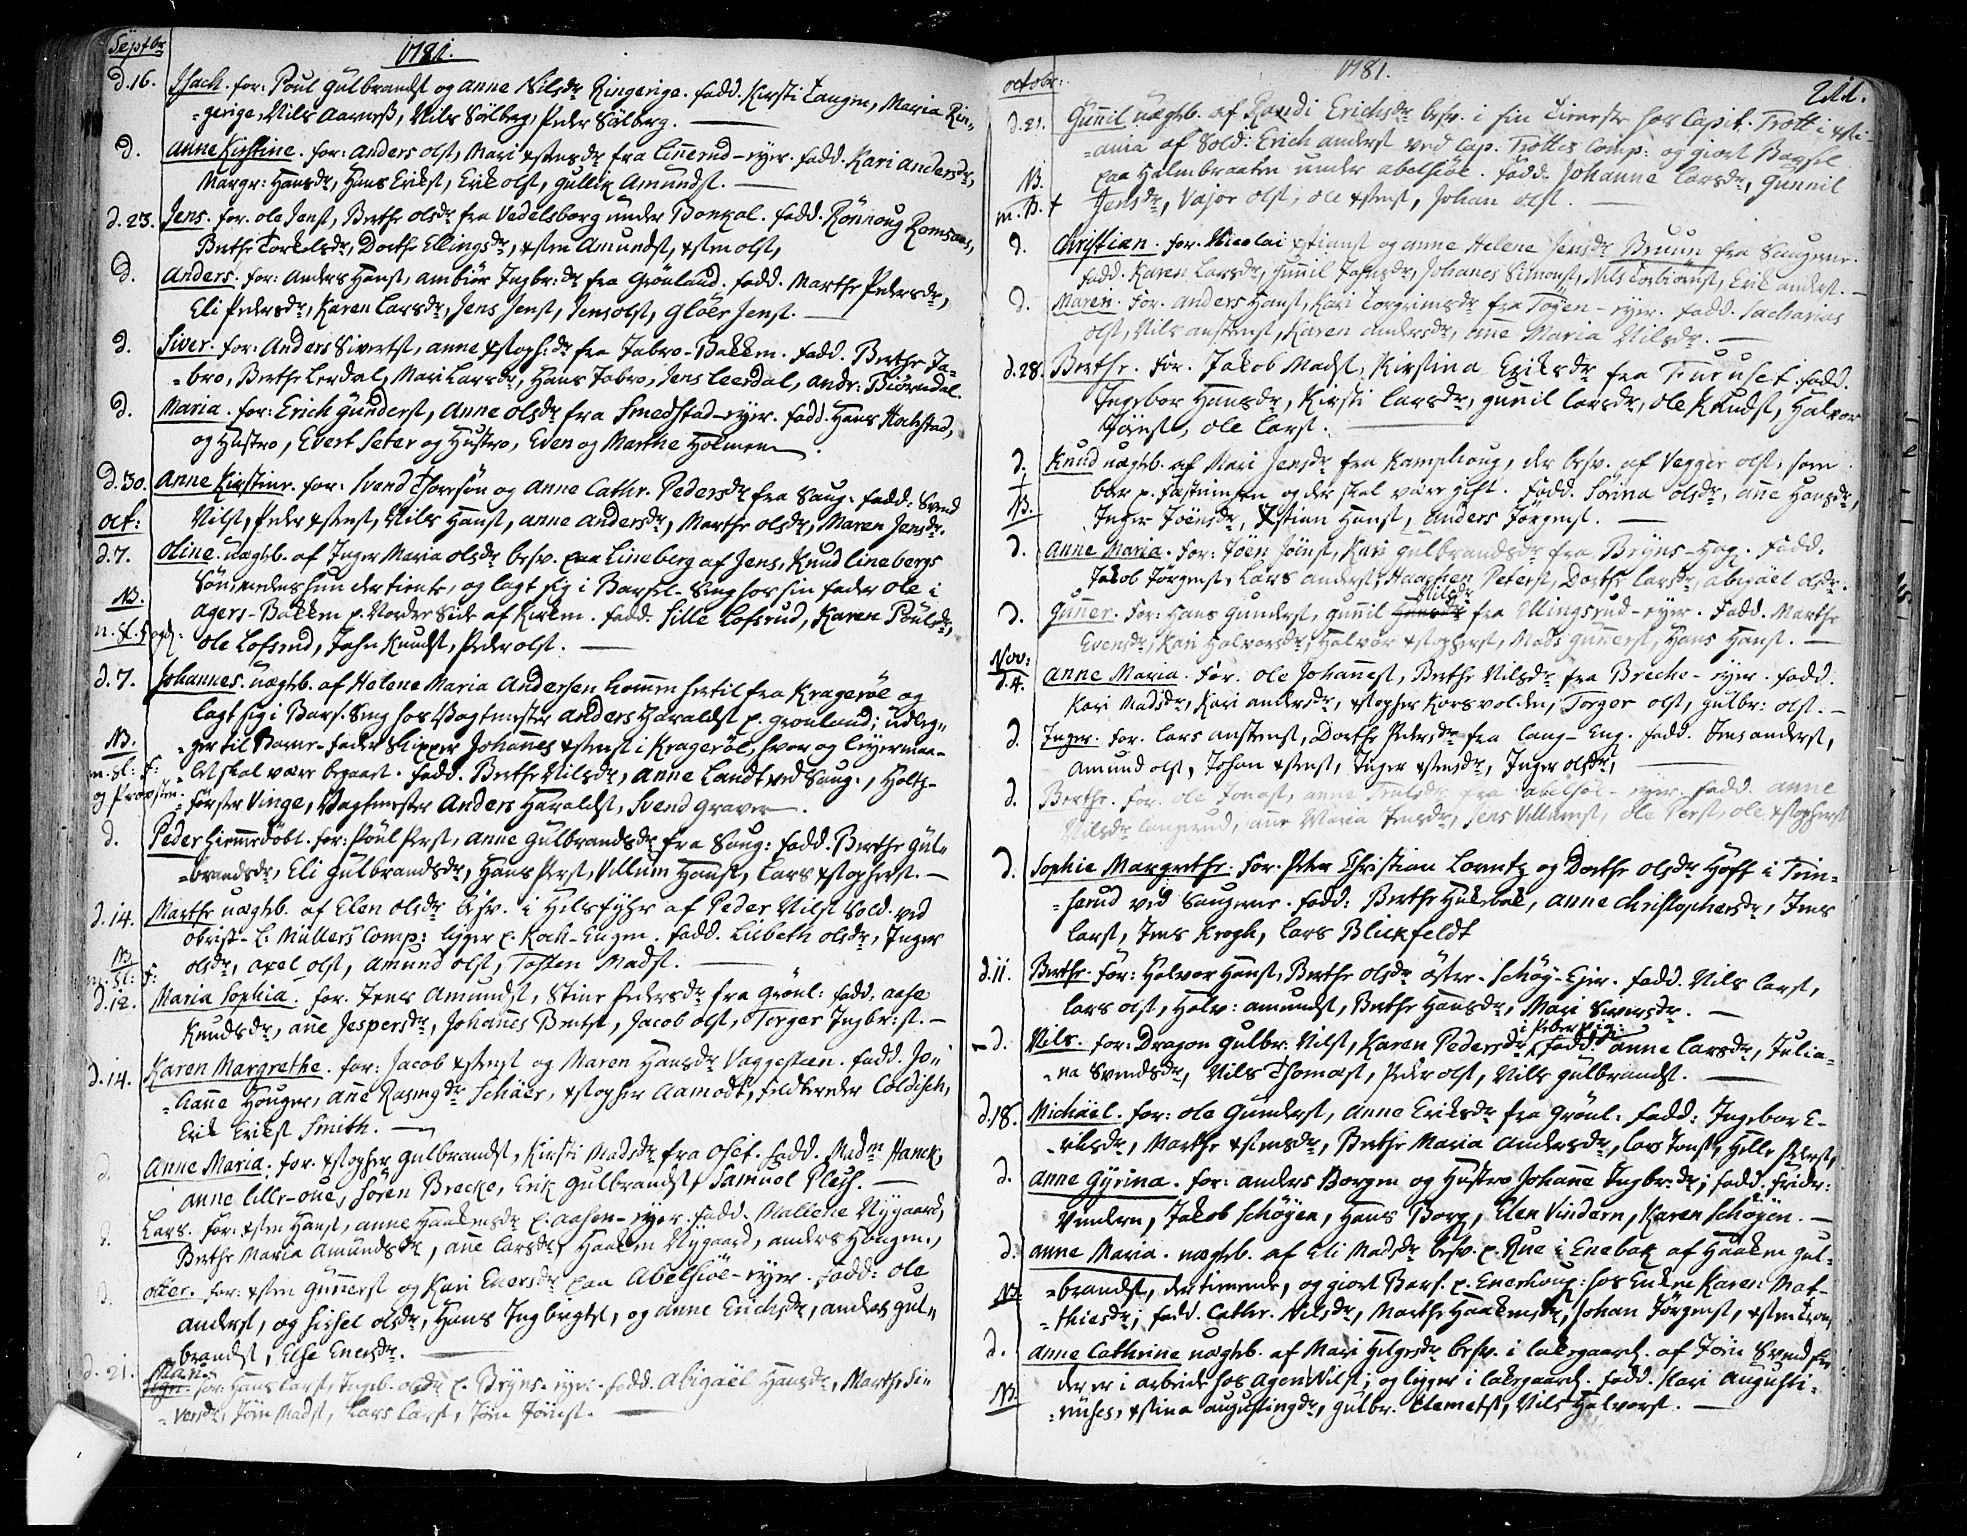 Septbr
1781.
d. 16. Isach. for: Poul Gulbrandst og Anne Nilsdr Ringerige. fadd. Kirsti Tangen, Maria Rin-
-gerige, Nils Aarness, Nils Sølberg, Peder Sølberg.
d. Anne Kirstine. for: Anders olst, Mari xstensdr fra Linnerud-eyer. fadd. Kari Andersdr,
Margr: Hansdr, Hans Erikst, Erik olst, Gullik Amundst.
d. 23. Jens. for. ole Jenst, Berthe olsdr fra Vedelsborg under Bonkal. fadd. Rönnoug Romsaas,
Berthe Torkelsdr, Dorthe Ellingsdr, xsten Amundst, xsten olst,
d. Anders. for: Anders Hanst, Ambiør Ingbr:dr fra Grönland. fadd. Marthe Pedersdr,
Eli Pedersdr, Karen Larsdr, Jens Jenst, Jens olst, Glöer Jenst.
d. Siver. for: Anders Sivertst, anne xstoph:dr fra Jabro-Bakken. fadd. Berthe Ja-
-bro, Berthe Lerdal, Mari Larsdr, Hans Jabro, Jens Leerdal, Andr: Biörndal.
d. Maria. for: Erich Gunderst, Anne olsdr fra Smedstad-eyer. fadd. Hans Hochstad,
og Hustro, Evert Seter og Hustro, Even og Marthe Holmen.
d. 30. Anne Kirstine. for: Svend Thoresøn og Anne Cathr. Pedersdr fra Saug. fadd: Svend
Nilst, Peder xstenst, Nils Hanst, anne Andersdr, Marthe olsdr, Maren Jensdr.
oct:
d. 7. Oline. uægteb. af Inger Maria olsdr besv. paa Lineberg af Jens, Knud Linebergs
Søn, medens hun der tiente, og lagt sig i Barsel-Seng hos sin fader ole i
NB. Agers-Bakken p. Norder Side af Kirken. fadd. Sille Lofsrud, Karen Pöulsdr,
ole Lofsrud, John Knudst, Peder olst.
d. 7. Johannes. uægteb. af Helene Maria Andersen kommen hertil fra Kragerøe og
lagt sig i Bars. Seng hos Vagtmester Anders Haraldst p. Grönland; udleg-
NB. -ger til Barne-fader Skipper Johannes xstenst i Kragerøe, hvor og leyermaa-
m. Sl: F: -let skal være begaaet. fadd. Berthe Nilsdr, Anne Landt ved Saug., Holtz-
og Provsten. -förster Vinge, Vagtmester Anders Haraldst, Svend Graver.
d. Peder hiemmedöbt. for: Pöul Perst, Anne Gulbrandsdr fra Saug: fadd. Berthe Gul-
-brandsdr, Eli Gulbrandsdr, Hans Perst, Villum Hanst, Lars xstopherst.
d. 14. Marthe uægteb. af Elen olsdr besv. i Helsfyhr af Peder Nilst Sold. ved
obrist-L: Müllers Comp: ligger p. Koch-Engen. fadd. Lisbeth olsdr, Inger
NB olsdr, Axel olst, Amund olst, Tosten Madst.
m. Sl: F:
d. 12. Maria Sophia. for. Jens Amundst, Stine Pedersdr fra Grönl: fadd. aase
Knudsdr, ane Jespersdr, Johannes Bentst, Jacob olst, Torger Ingbr:st.
d. 14. Karen Margrethe. for: Jacob xstenst og Maren Hansdr Vaggesteen. fadd. Jo-
-hanne Houger, ane Rasmusdr Schäer, xstopher Aamodt, Feldbereder Coldisch,
Erik Erikst Smith.
d. Anne Maria. for. xstopher Gulbrandst, Kirsti Madsdr fra oset. fadd. Madm Hanck,
Anne Lille-oue, Søren Brecke, Erik Gulbrandst, Samuel Plesh.
d. Lars. for: xsten Hanst, anne Haakensdr p. Aasen-eyer. fadd. Mallene Nygaard,
Berthe Maria Amundsdr, ane Larsdr, Haaken Nygaard, anders Hougen.
d. Otter. for: xsten Gunnerst og Kari Enersdr paa Abelsiöe-eyer. fadd: ole
anderst, og Sissel olsdr, Hans Ingbretst, og Anne Erichsdr, anders Gul-
brandst, Else Enersdr.
d. 21. Mari.
for. Hans Larst, Ingeb. olsdr p. Bryns-eyer. fadd. Abigael Hansdr, Marthe Si-
-versdr, Jörn Madst, Lars Larst, Jörn Jönst.
octobr:
1781.
211.
d. 21. Gunil uægteb. af Randi Erichsdr besv. i sin Tieneste hos Capit. Trott i xsti-
-ania af Sold: Erich anderst ved Cap. Trottes Comp: og giort Barsel
NB. paa Halmbraaten under abelsiöe. fadd. Johanne Larsdr, Gunnil
Jensdr, Vajor olst, ole xstenst, Johan olst.
d. Christian. for. Nicolai xstianst og Anne Helene Jensdr Bruun fra Saugene.
fadd. Karen Larsdr, Gunil Johnsdr, Johanes Simonst, Nils Torbiornst, Erik anderst.
d. Maren. for. Anders Hanst, Kari Torgrimsdr fra Tøyen-eyer. fadd. Sacharias
olst, Nils Anstenst, Karen Andersdr, ane Maria Nilsdr.
d. 28. Berthe. for. Jakob Madst, Kirstina Eriksdr fra Furuset. fadd.
Ingebor Hansdr, Kirsti Larsdr, gunil Larsdr, ole Knudst, Halvor
Jönst, ole Larst.
d. Knud uægteb. af Mari Jensdr fra Kamphoug, der besv. af Vegger olst, som
bor p. Fæstningen og der skal være gift. fadd. Sørina olsdr, ane Hansdr,
NB. Inger Joensdr, xstian Hanst, Anders Jörgenst.
d. Anne Maria. for: Jöen Jönst, Kari Gulbrandsdr fra Bryns-Hag. fadd.
Jakob Jörgenst, Lars anderst, Haagen Peterst, Dorthe Larsdr, Abigael olsdr.
Nilsdr
d. Guner. for: Hans Gunderst, Gunil fra Ellingsrud-eyer. fadd. Marthe
Evensdr, Kari Halvorsdr, Halvor xstopherst, Mads Gunerst, Hans Hanst.
Nov:
d. 4. Anne Maria. for. ole Johanest, Berthe Nilsdr fra Brecke-eyer. fadd.
Kari Madsdr, Kari Andersdr, xstopher Korsvolden, Torger olst, Gulbr: olst.
d. Inger. for. Lars Anstenst, Dorthe Pedersdr fra Lang-Eng. fadd. Jens anderst,
Amund olst, Johan xstenst, Inger xstensdr, Inger olsdr,
d. Berthe. for. ole Jonast, anne Truelsdr fra Abelsøe-eyer. fadd. Anne
Nilsdr Langerud, ane Maria Jensdr, Jens Villumst, ole Perst, ole xstopherst
d. Sophie Margrethe. for. Peter Christian Lorentz og Dorthe olsdr Hoff i Trin-
-serud ved Saugene. fadd: Berthe Hukebak, Anne Christophersdr, Jens
Larst, Jens Krogh, Lars Blickfeldt
d. 11. Berthe. for: Halvor Hanst, Berthe olsdr öster-Schöy-Ejer. fadd. Nils Larst,
Lars olst, Halv: amundst, Berthe Hansdr, Mari Siversdr.
i Pebervig:
d. Nils. for: Dragon Gulbr: Nilst, Karen Pedersdr fadd. Anne Larsdr, Julia-
-na Svendsdr, Nils Thomast, Peder olst, Nils Gulbrandst.
d. 18. Michäel. for: ole Gunderst, Anne Eriksdr fra Grönl: fadd: Ingebor E-
-riksdr, Marthe xstensdr, Berthe Maria Andersdr, Lars Jenst, Helle Perst,
d. Anne Gÿrina. for: Anders Borgen og Hustro Johanne Ingbr:dr; fadd. Frider:
Vindern, Jakob Schöyen, Hans Borg, Elen Vindern, Karen Schøyen.
d. Anne Maria. uægteb. af Eli Madsdr besv. p. Rue i Enebak af Haaken Gul-
NB. -brandst, der tienende, og giort Bars. p. Enerhoug: hos Enken Karen Mat-
-thiesdr; fadd. Cathr. Nilsdr, Marthe Haakensdr, Johan Jörgenst, xsten
d. Anne Cathrine uægteb. af Mari Helgesdr besv. i Lakegaard. af Jörn Svendst
der er i arbeide hos Agent Nilst; og ligger i Lakegaard. fadd. Kari Augusti-
NB. -nuses, xstina Augustinsdr, Gulbr. Clemetst, Nils Halvorst.